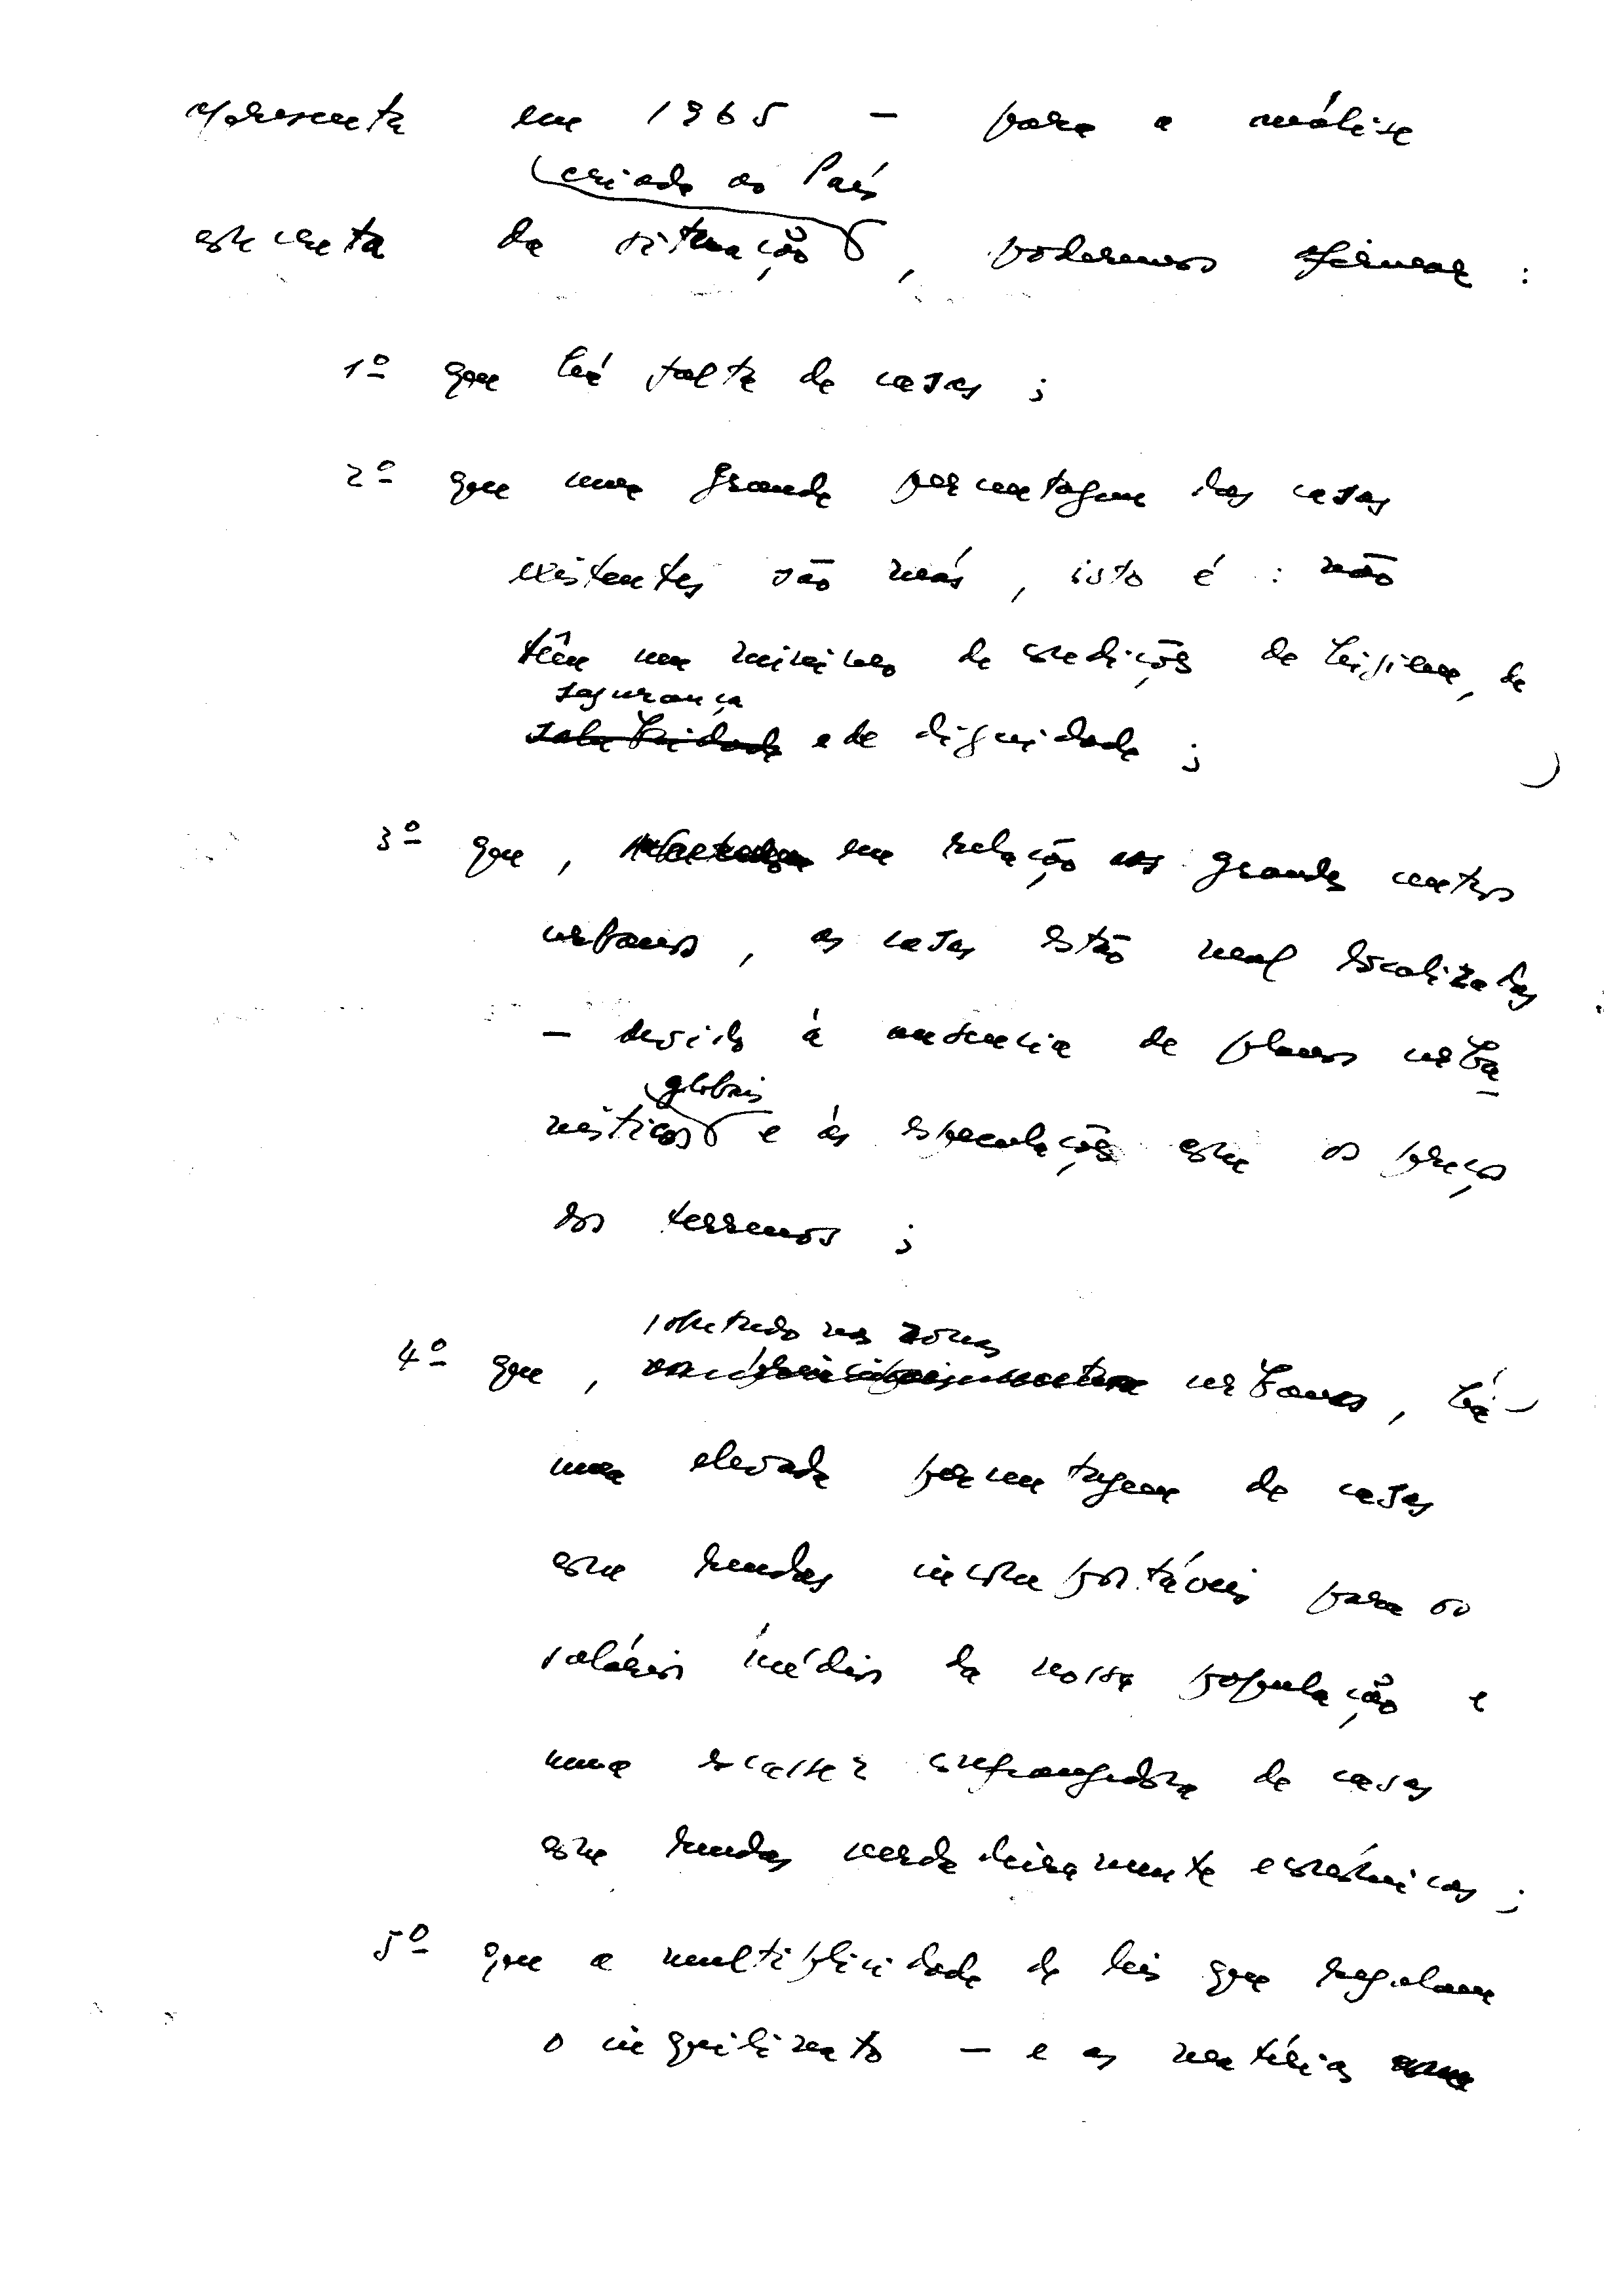 apresenta em 1965 — para a análise
criada ao País
concreta da situação, poderemos afirmar :
1º que há falta de casas ;
2º que uma grande percentagem das casas
existentes são más, isto é : não
têm um mínimo de condições de higiene, de
segurança
salubridade e de dignidade ;
3º que, em relação aos grandes centros
urbanos, as casas estão mal localizadas
— devido à ausencia de planos urba-
globais
nísticos e às especulações com os preços
dos terrenos ;
sobretudo nas zonas
4º que, urbanas, há
uma elevada percentagem de casas
com rendas incomportáveis para os
salários médios da nossa população e
uma escassez confrangedora de casas
com rendas verdadeiramente económicas ;
5º que a multiplicidade de leis que regulam
o inquilinato — e as matérias